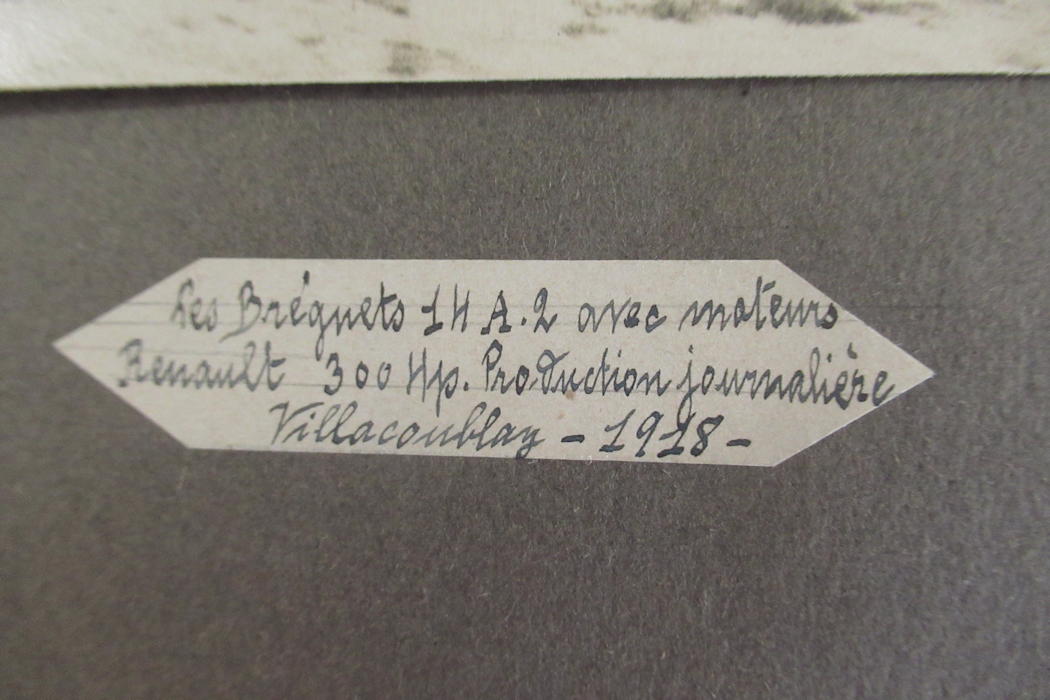 Les Bréguets 14 A.2 avec moteurs
Renault 300 Hp. Production journalière
Villacoublay - 1918 -